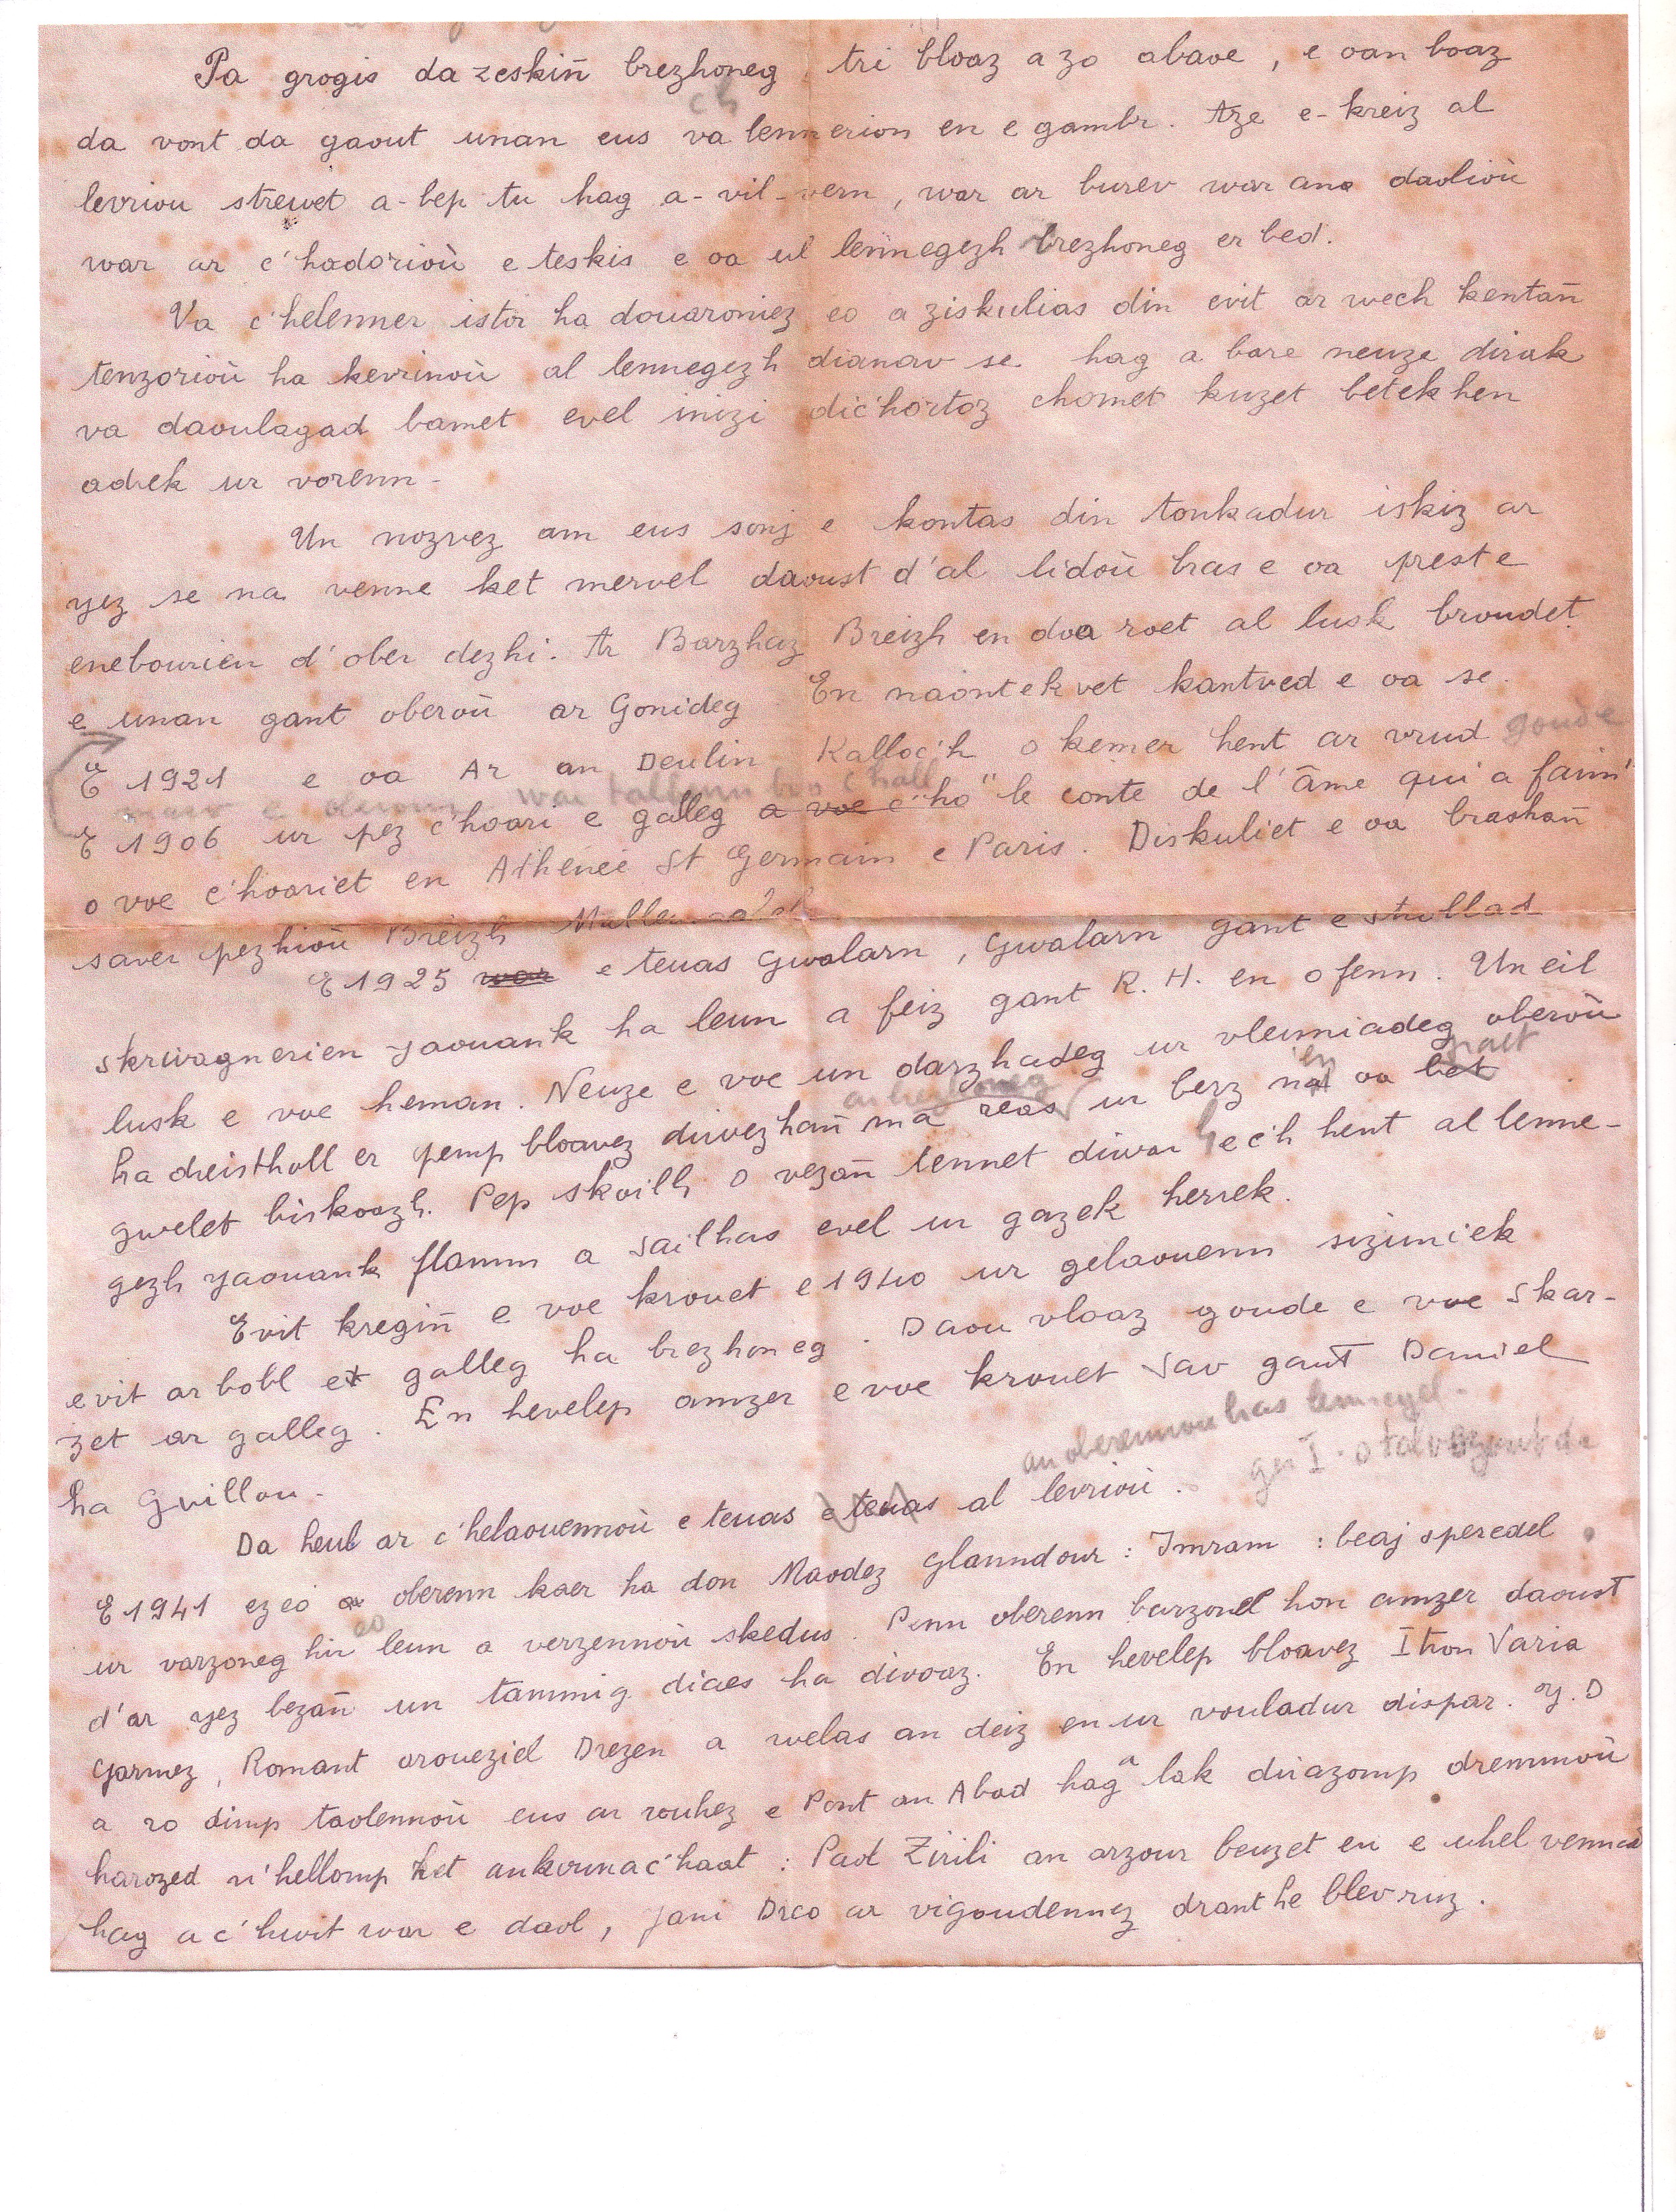 Pa grogis da zeskiñ brezhoneg, tri bloaz a zo abaoe, e oan boaz
da vont da gaout unan eus va lennerion en e gambr. Aze e-kreiz al
levriou strewet a-bep tu hag a-vil-vern, war ar burev war ana daolioù
war ar c'hadorioù e teskis e oa ul lennegezh brezhoneg er bed.
Va c'helenner istor ha douaroniez eo a ziskulias din evit ar wech kentañ
tenzorioù ha kevrinoù al lennegezh dianav-se hag a bare neuze dirak
va daoulagad bamet evel inizi dic'hortoz chomet kuzet betek hen
adrek ur vorenn -
Un nozvez am eus sonj e kontas din tonkadur iskiz ar
yez se na venne ket mervel daoust d'al lidoù bras e oa prest e
enebourien d'ober dezhi. Ar Barzhaz Breizh en doa roet al lusk broudet
e unan gant oberoù ar Gonideg En naontekvet kantved e oa se.
E 1921 e oa Ar an Deulin Kalloc'h o kemer hent ar vrud goude
E 1906 ur pez c'hoari e galleg a voe c'ho "le conte de l'âme qui a faim"
o voe c'hoariet en Athénée St Germain e Paris. Diskuliet e oa brashañ
saver pezhioù Breizh
E 1925 war e teuas Gwalarn, Gwalarn gant e strollad
skrivagnerien yaouank ha leun a feiz gant R. H. en o fenn. Un eil
lusk e voe heman. Neuze e voe un darzhadeg ur vleuniadeg oberoù
ha dreistholl er pemp bloavez diwezhañ ma reas ur berz n'en oa bet
gwelet biskoazh. Pep skoilh o vezañ tennet diwar hec'h hent al lenne-
gezh yaouank flamm a sailhas evel ur gazek herrek.
Evit kregiñ e voe krouet e 1940 ur gelaouenn sizuniek
evit ar bobl e galleg ha brezhoneg. Daou vloaz goude e voe skar-
zet ar galleg. En hevelep amzer e voe krouet Sav gant Daniel
ha Guillou -
an oberennou bras lennegel.
Da heul ar c'helaouennoù e teuas e teuas al levrioù.
E 1941 ez eo oberenn kaer ha don Maodez Glanndour : Imram : beaj speredel
ur varzoneg hir leun a verzennoù skedus. Penn oberenn barzonel hon amzer daoust
d'ar yez bezañ un tammig diaes ha divoaz. En hevelep bloavez Itron Varia
Garmez, Romant aroueziel Drezen a welas an deiz en ur vouladur dispar. Y. D
a ro dimp taolennoù eus ar vuhez e Pont an Abad hag a lak dirazomp dremmoù
harozed n'hellomp ket ankounac'haat : Paol Zirili an arzour beuzet en e uhel vennad
hag a c'hwit war e daol, Jani Dreo ar vigoudennez drant he blev ruz.